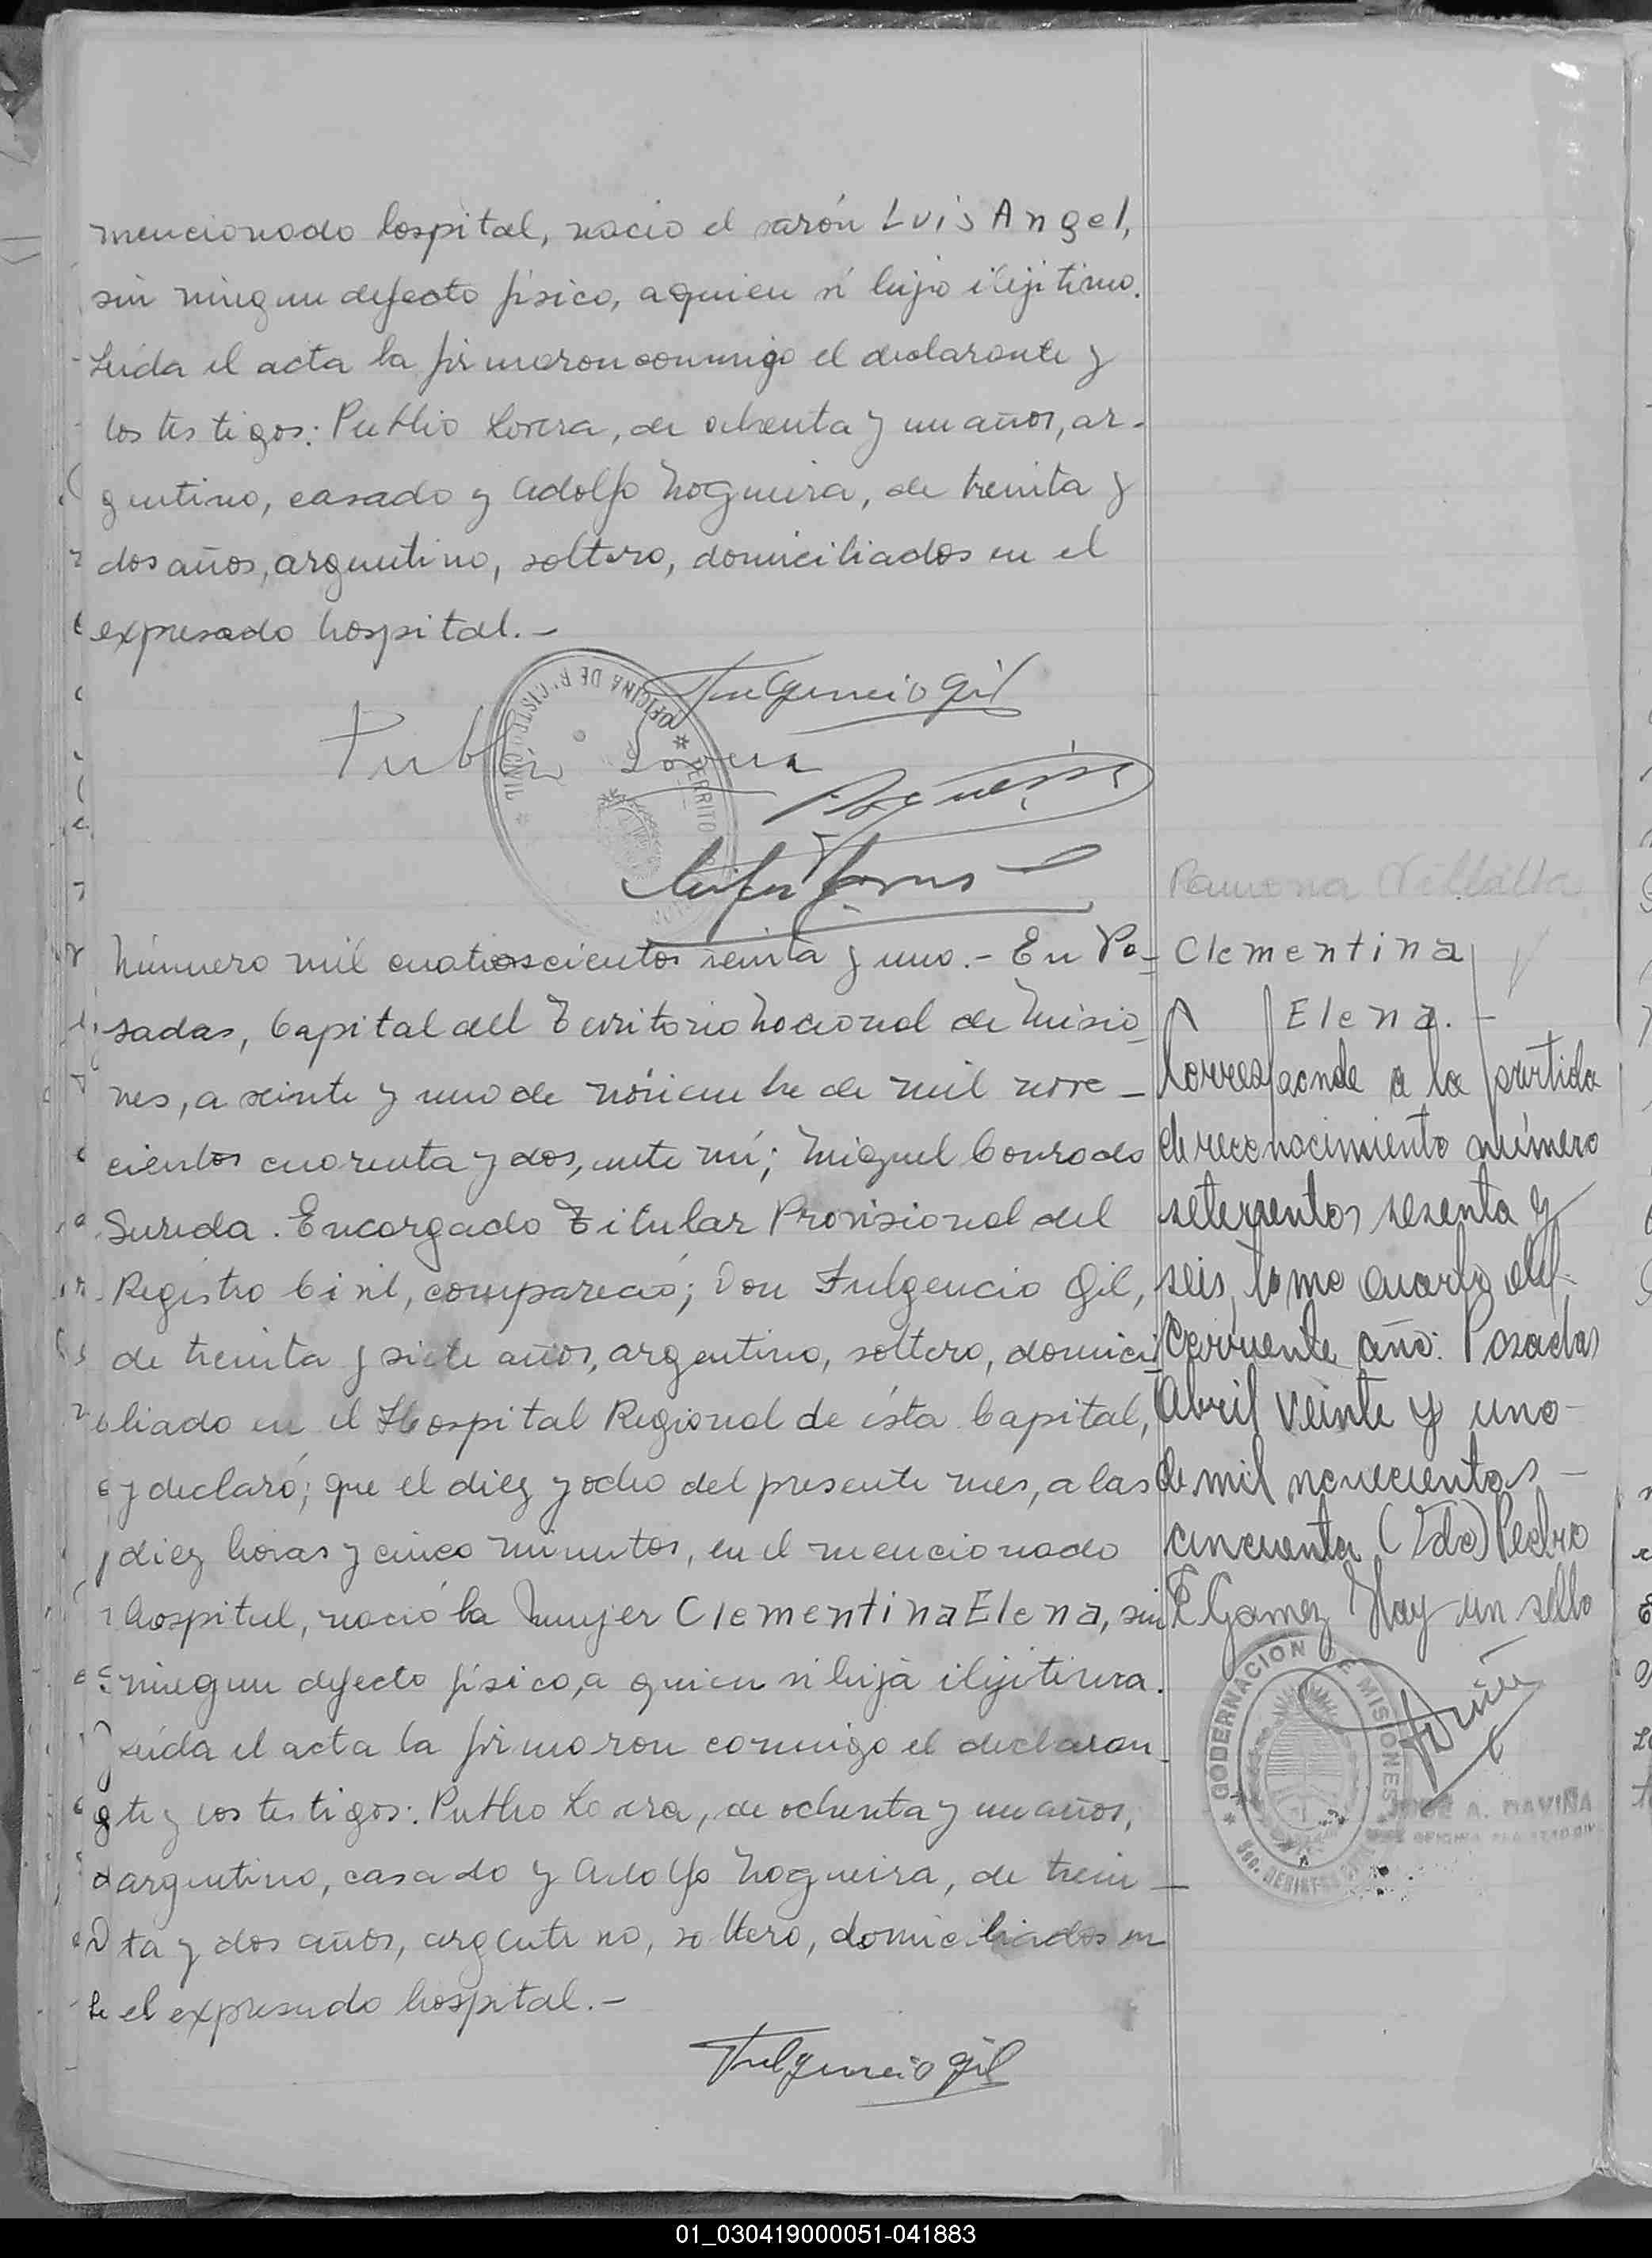 mencionado hospital, nació el varón Luis Angel,
sin ningun defecto físico, a quien ví hijo ilejitimo.
Leída el acta la firmaron conmigo el declarante y
los testigos: Publio Lovera, de ochenta y un años, ar-
gentino, casado y Adolfo Nogueira, de treinta y
dos años, argentino, soltero, domiciliados en el
expresado hospital.-
Fulgencio Gil
Publio Lovera
OFICINA DE REGISTRO CIVIL
Número mil cuatroscientos veinta y uno.- En Po-
sadas, Capital dell Territorio Nacional de Misio-
nes, a veinte y uno de noviembre de mil nove-
cientos cuarenta y dos, ante mí; Miguel Conrado
Sureda. Encargado Titular Provisional del
Registro Civil, compareció; Don Fulgencio Gil,
de treinta y siete años, argentino, soltero, domici
liado en el Hospital Regional de ésta Capital,
y declaró; que el diez y ocho del presente mes, a las
diez horas y cinco minutos, en el mencionado
hospital, nació la mujer Clementina Elena, sin
ningun defecto físico, a quien ví hija ilijitima.
Leída el acta la firmaron conmigo el declaran-
te y los testigos: Publio Lovera, de ochenta y un años,
argentino, casado y Adolfo Nogueira, de trein-
ta y dos años, argentino, soltero, domiciliados en
el expresado hospital.-
Fulgencio Gil
Ramona
Clementina
Elena.-
Corresponde a la partida
de reconocimiento número
setecientos sesenta y
seis, tomo cuarto del
corriente año: Posadas
Abril veinte y uno
de mil novecientos
cincuenta (Fdo) Pedro
E Gamez Hay un sello
GOBERNACION DE MISIONES
JOSE A. DAVIÑA
01_030419000051-041883